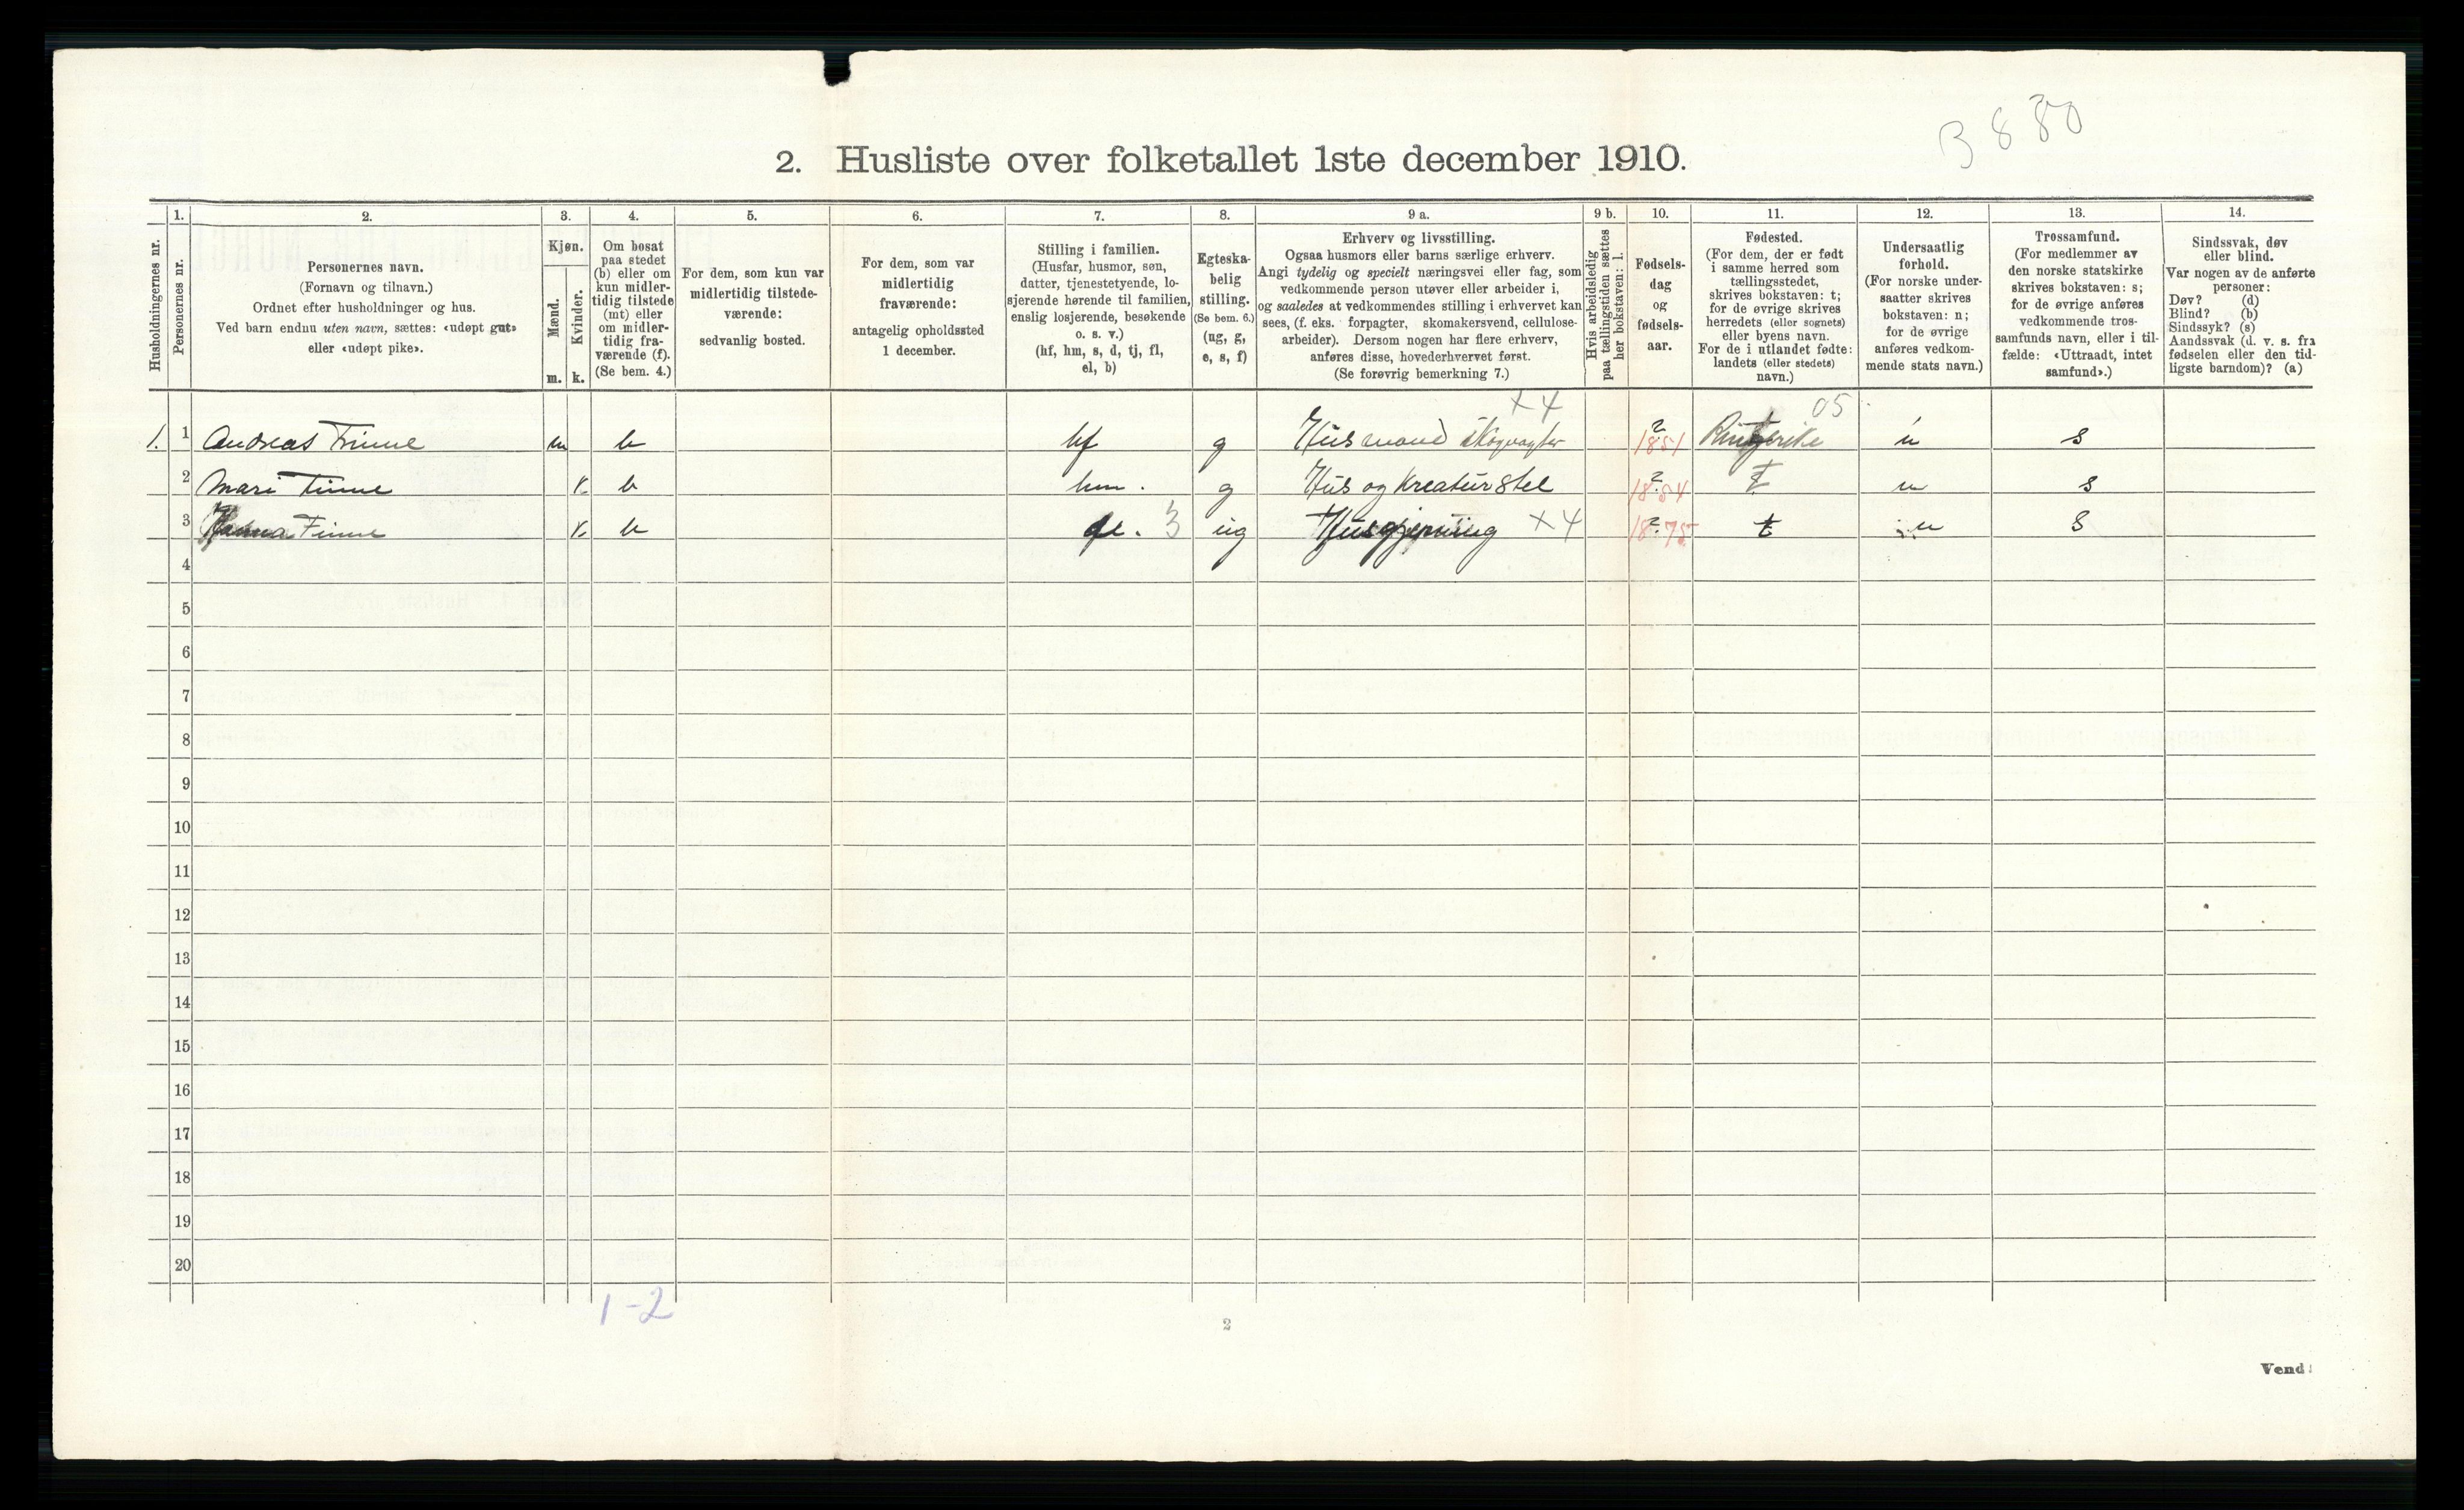 B 880
2. Husliste over folketallet 1ste december 1910.
1. 2. 3. 4. 5. 6. 7. 8. 9 a. 9 b. 10. 11. 12. 13. 14.
Husholdningernes nr.
Personernes nr.
Personernes navn.
(Fornavn og tilnavn.)
Ordnet efter husholdninger og hus.
Ved barn endnu uten navn, sættes: «udøpt gut»
eller «udøpt pike».
Kjøn.
Mænd.
Kvinder.
m. k.
Om bosat
paa stedet
(b) eller om
kun midler-
tidig tilstede
(mt) eller
om midler-
tidig fra-
værende (f).
(Se bem. 4.)
For dem, som kun var
midlertidig tilstede-
værende:
sedvanlig bosted.
For dem, som var
midlertidig
fraværende:
antagelig opholdssted
1 december.
Stilling i familien.
(Husfar, husmor, søn,
datter, tjenestetyende, lo-
sjerende hørende til familien,
enslig losjerende, besøkende
o. s. v.)
(hf, hm, s, d, tj, fl,
el, b)
Egteska-
belig
stilling.
(Se bem. 6.)
(ug, g,
e, s, f)
Erhverv og livsstilling.
Ogsaa husmors eller barns særlige erhverv.
Angi tydelig og specielt næringsvei eller fag, som
vedkommende person utøver eller arbeider i,
og saaledes at vedkommendes stilling i erhvervet kan
sees, (f. eks. forpagter, skomakersvend, cellulose-
arbeider). Dersom nogen har flere erhverv,
anføres disse, hovederhvervet først.
(Se forøvrig bemerkning 7.)
Hvis arbeidsledig
paa tællingstiden sættes
her bokstaven: l.
Fødsels-
dag
og
fødsels-
aar.
Fødested.
(For dem, der er født
i samme herred som
tællingsstedet,
skrives bokstaven: t;
for de øvrige skrives
herredets (eller sognets)
eller byens navn.
For de i utlandet fødte:
landets (eller stedets)
navn.)
Undersaatlig
forhold.
(For norske under-
saatter skrives
bokstaven: n;
for de øvrige
anføres vedkom-
mende stats navn.)
Trossamfund.
(For medlemmer av
den norske statskirke
skrives bokstaven: s;
for de øvrige anføres
vedkommende tros-
samfunds navn, eller i til-
fælde: «Uttraadt, intet
samfund».)
Sindssvak, døv
eller blind.
Var nogen av de anførte
personer:
Døv? (d)
Blind? (b)
Sindssyk? (s)
Aandssvak (d. v. s. fra
fødselen eller den tid-
ligste barndom)? (a)
x4 05
1. 1 Andreas Finne m b hf g Husmand skogvagter ? 1851 Ringerike n s
2 Mari Finne k b hm. g Hus og kreaturstel ? 1854 t n s
3 Finne k b 3 ug Husgjerning x4 ? 1875 t n s
4
5
6
7
8
9
10
11
12
13
14
15
16
17
18
19
20
1-2
2
Vend!